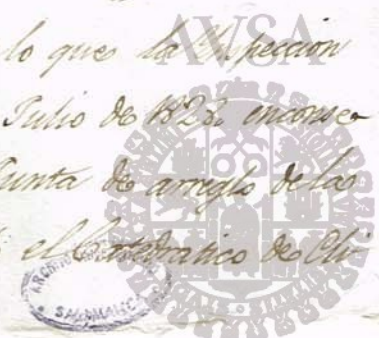 AVSA
lo que la Inspeccion
Julio de 1823. enconse
Junta de arreglo de las
el Catedratico de Cli
ARCHIVO
SALAMANCA